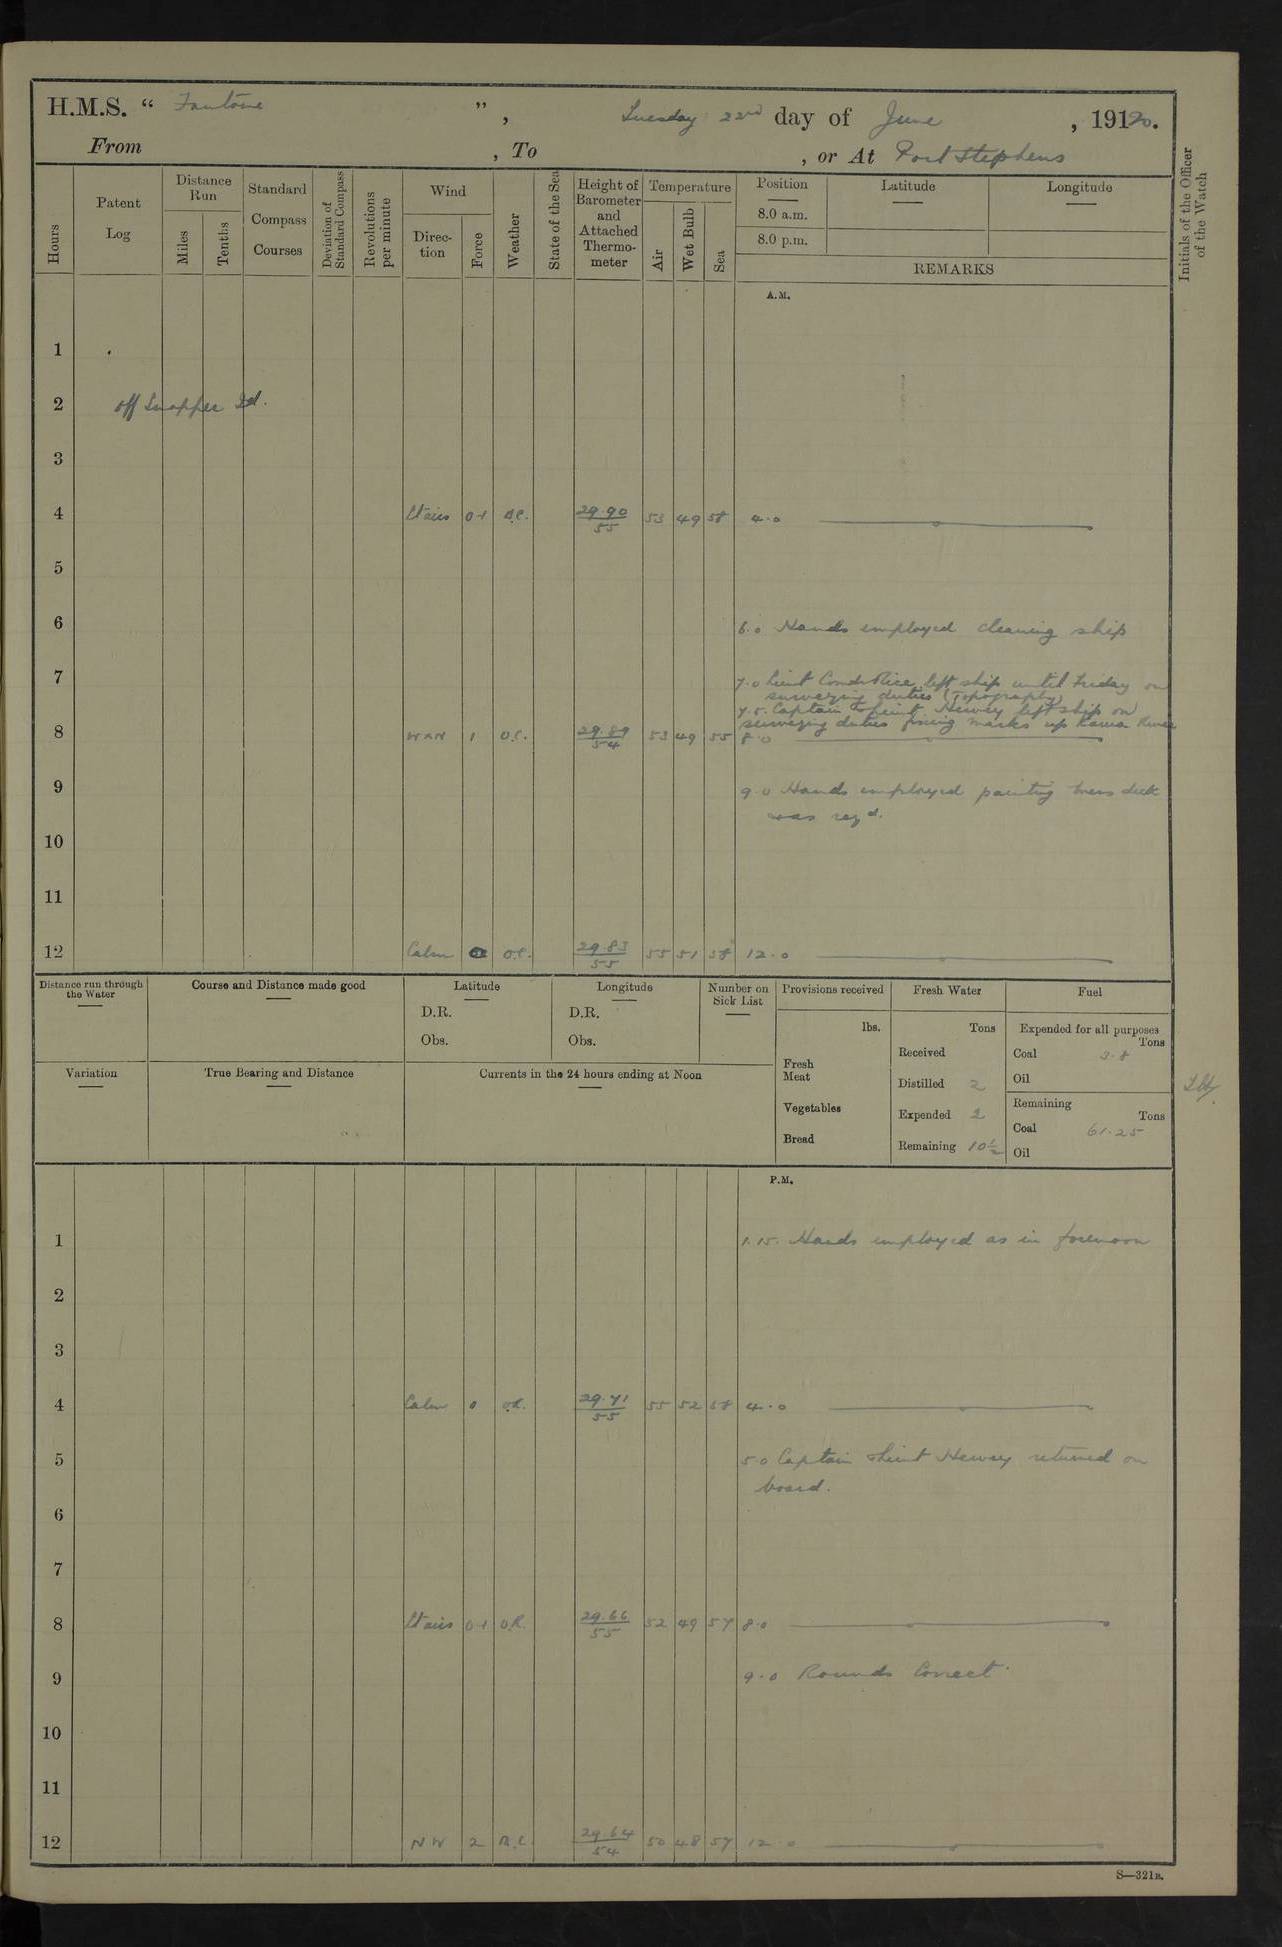 H.M.S. “ Fantome ”, Tuesday 22nd day of June, 19120.
From , To , or At Port Stephens
Hours
Patent Log
Distance Run
Miles
Tenths
Standard Compass Courses
Deviation of Standard Compass
Revolutions per minute
Wind
Direction
Force
Weather
State of the Sea
Height of Barometer and Attached Thermometer
Temperature
Air
Wet Bulb
Sea
Position
8.0 a.m.
8.0 p.m.
Latitude
Longitude
REMARKS
Initials of the Officer of the Watch
A.M.
1
2 off Snapper Isd.
3
4 Lt airs 0-1 29.90/55 53 49 58 4.0
5
6 6.0 Hands employed cleaning ship
7 7.0 Lieut Comdr Rice left ship until Friday on
surveying duties (Topography)
7.5. Captain & Lieut Hewey left ship on
surveying duties fixing marks up Karua River
8 WNW 1 O.C. 29.89/54 53 49 55 8.0
9 9.0 Hands employed painting mess deck
& as reqd.
10
11
12 Calm 0 O.C. 29.83/55 55 51 58 12.0
Distance run through the Water
Course and Distance made good
Latitude
D.R.
Obs.
Longitude
D.R.
Obs.
Number on Sick List
Provisions received
lbs.
Fresh Meat
Vegetables
Bread
Fresh Water
Tons
Received
Distilled 2
Expended 2
Remaining 10½
Fuel
Expended for all purposes
Tons
Coal 3.8
Oil
Remaining
Tons
Coal 61.25
Oil
Variation
True Bearing and Distance
Currents in the 24 hours ending at Noon
P.M.
1 1.15. Hands employed as in forenoon
2
3
4 Calm 0 29.71/55 55 52 58 4.0
5 5.0 Captain & Lieut Hewey returned on
board.
6
7
8 Lt airs 0-1 29.66/55 52 49 57 8.0
9 9.0 Rounds Correct.
10
11
12 NW 2 B.C. 29.64/54 50 48 57 12.0
S—321B.